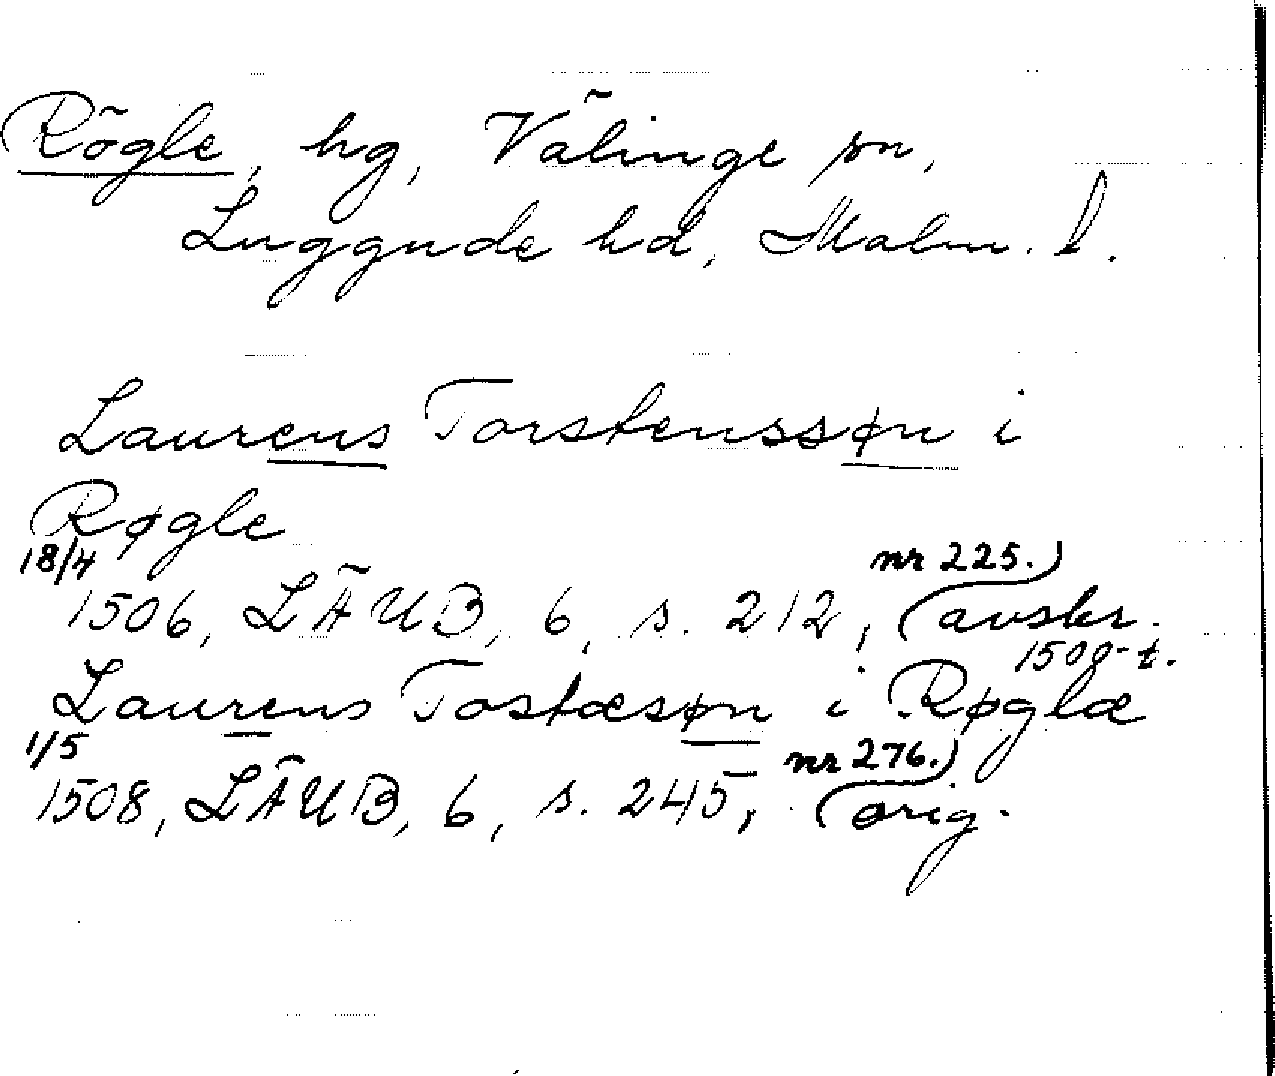 Rögle, hg, Välinge sn,
Luggude hd, Malm. l.
Laurens Torstenssøn i
Røgle
18/4 nr 225.
1506, LÄUB, 6, s. 212, avskr.
1500-t.
Laurens Tostæsøn i Røglæ
1/5 nr 276.
1508, LÄUB, 6, s. 245, orig.